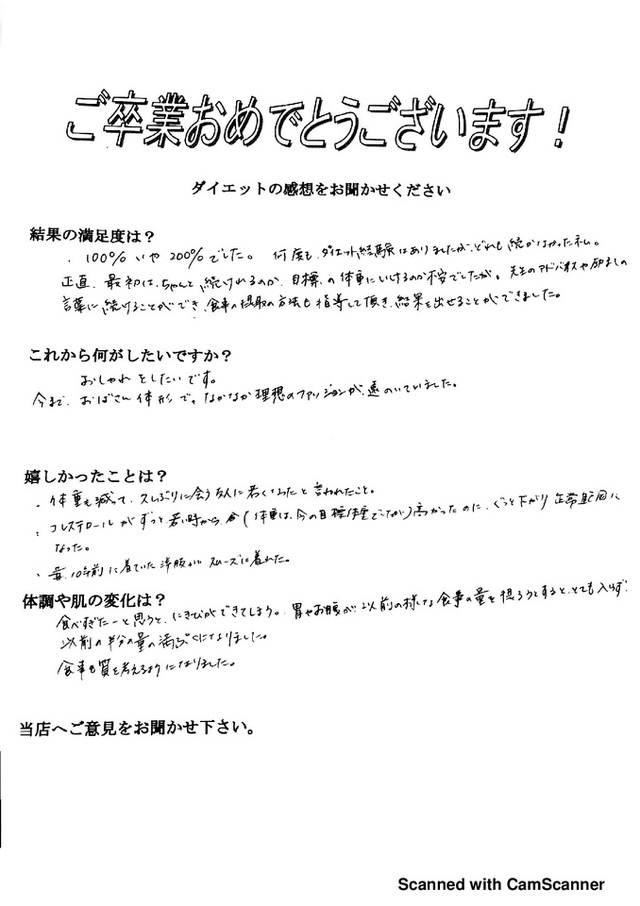 ご卒業おめでとうございます！
ダイエットの感想をお聞かせください
結果の満足度は？
・100% いや 200%でした。 何度も、ダイエット経験はありましたが、どれも続かなかった私。
正直、最初は、ちゃんと続けれるのか、目標の体重にいけるのか不安でしたが、先生のアドバイスや励ましの
言葉に続けることができ、食事の摂取の方法も指導して頂き、結果を出せることができました。
これから何がしたいですか？
おしゃれをしたいです。
今まで、おばさん体形で、なかなか理想のファッションが、遠のいていました。
嬉しかったことは？
・体重も減って、久しぶりに会う友人に若くなったと言われたこと。
・コレステロールがずっと若い時から(体重は、今の目標体重でも)高かったのに、ぐっと下がり正常範囲に
なった。
・10年前に着ていた洋服がスムーズに着れた。
体調や肌の変化は？
食べすぎたーと思うと、にきびができてしまう。胃やお腹が以前の様な食事の量を摂ろうとすると、とても入らず、
以前の半分の量で満ぷくになりました。
食事も質を考えるようになりました。
当店へご意見をお聞かせ下さい。
Scanned with CamScanner